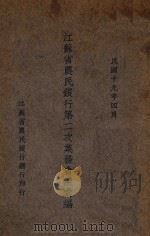 民國十九年四月
江蘇省農民銀行第二次業務
編
江蘇省農民銀行總行印行